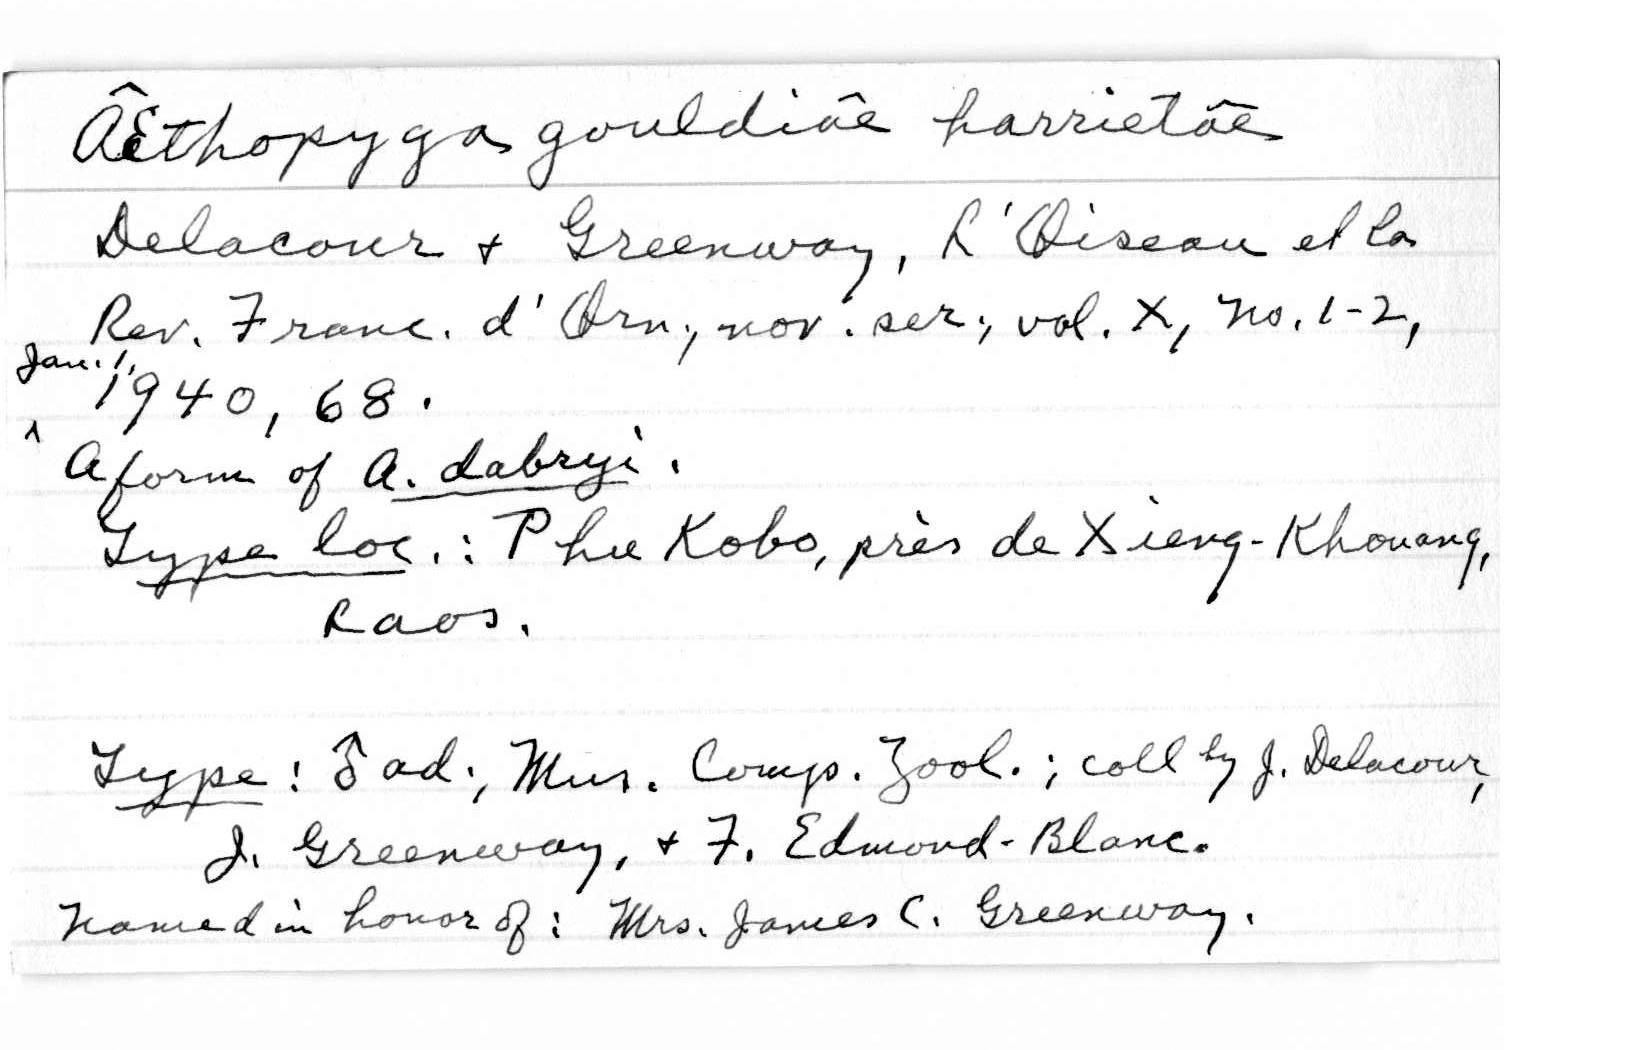 Æthopyga gouldiæ harrietæ
Delacour & Greenway, L'Oiseau et la
Rev. Franc. d'Orn., nov. ser., vol. X, No. 1-2,
Jan. 1,
1940, 68.
A form of A. dabryi.
Type loc.: Phu Kobo, près de Xieng-Khouang,
Laos.
Type: ♂ ad., Mus. Comp. Zool.; coll by J. Delacour,
J. Greenway, & F. Edmond-Blanc.
Named in honor of: Mrs. James C. Greenway.